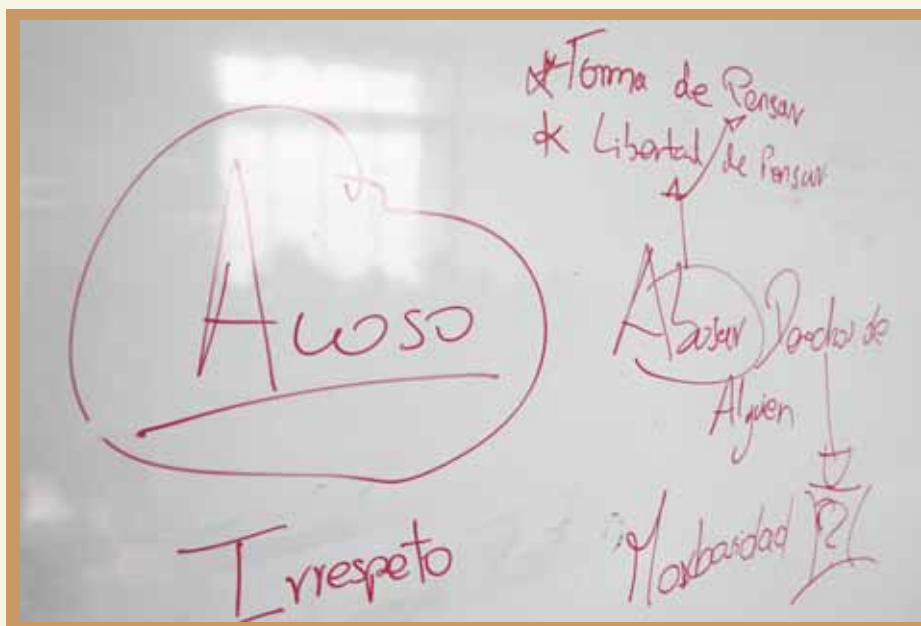 Acoso
Irrespeto
* Forma de Pensar
* Libertad de Pensar
Abusar Derechos de
Alguien
Morbosidad [?]